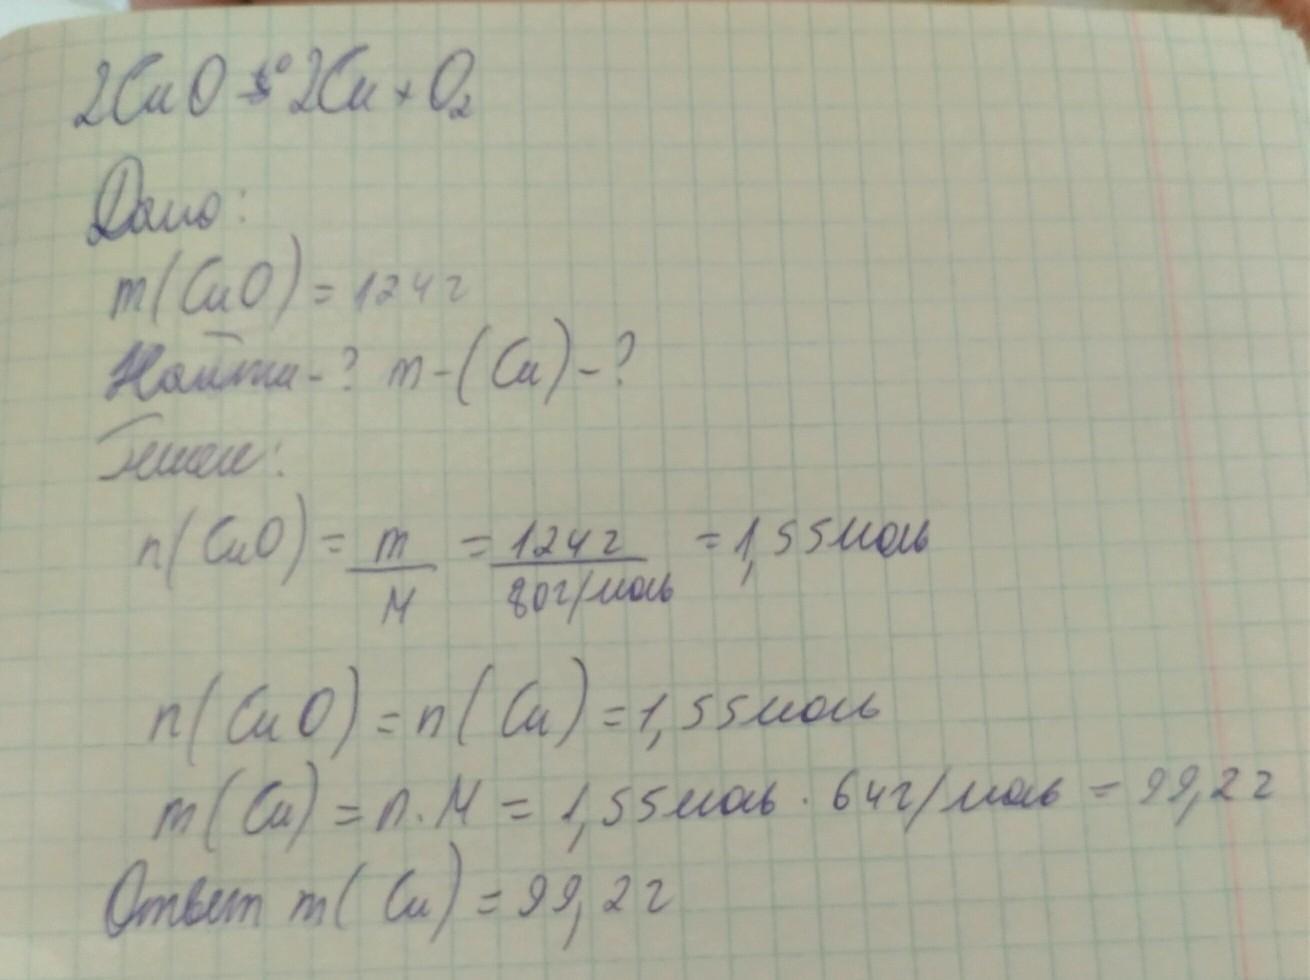 2CuO t° 2Cu + O₂
Дано:
m(CuO) = 124г
Найти-? m-(Cu)-?
n(CuO) = m/M = 124г/80г/моль = 1,55моль
n(CuO) = n(Cu) = 1,55моль
m(Cu) = n·M = 1,55моль · 64г/моль = 99,2г
Ответ m(Cu) = 99,2г